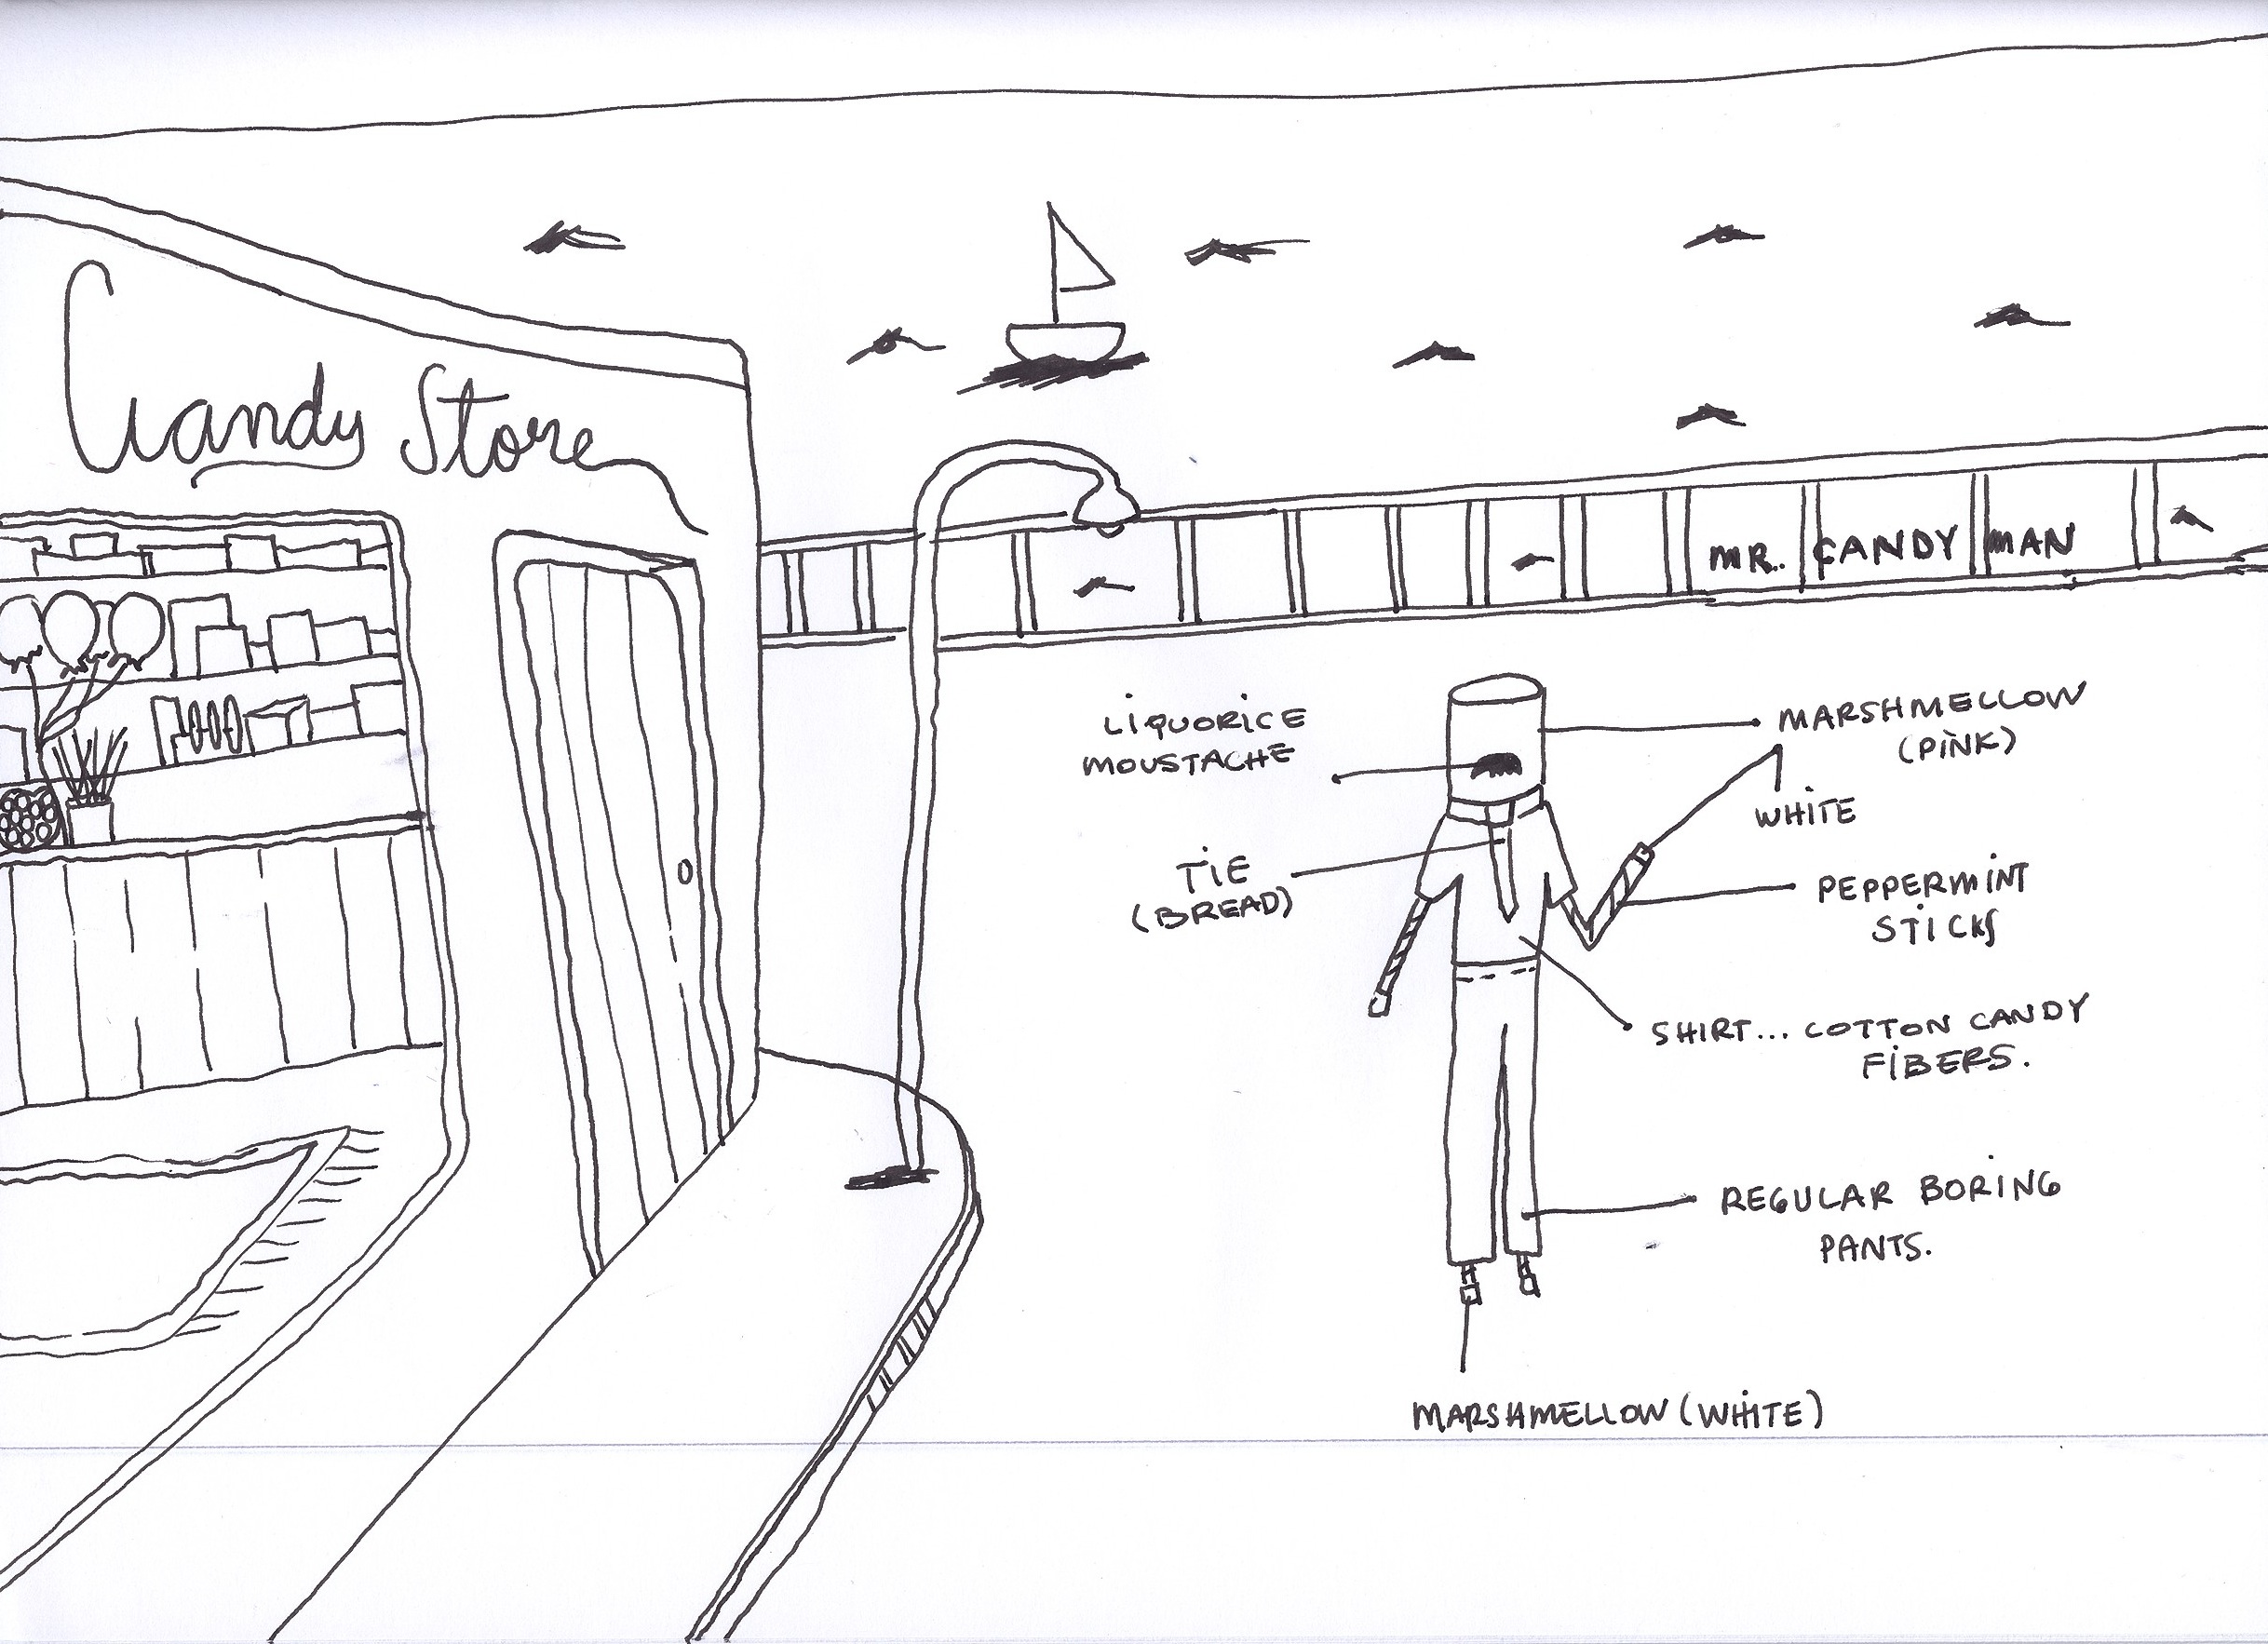 Candy Store
MR. CANDY MAN
LIQUORICE
MOUSTACHE
MARSHMELLOW
(PINK)
WHITE
TIE
(BREAD)
PEPPERMINT
STICKS
SHIRT... COTTON CANDY
FIBERS.
REGULAR BORING
PANTS.
MARSHMELLOW (WHITE)